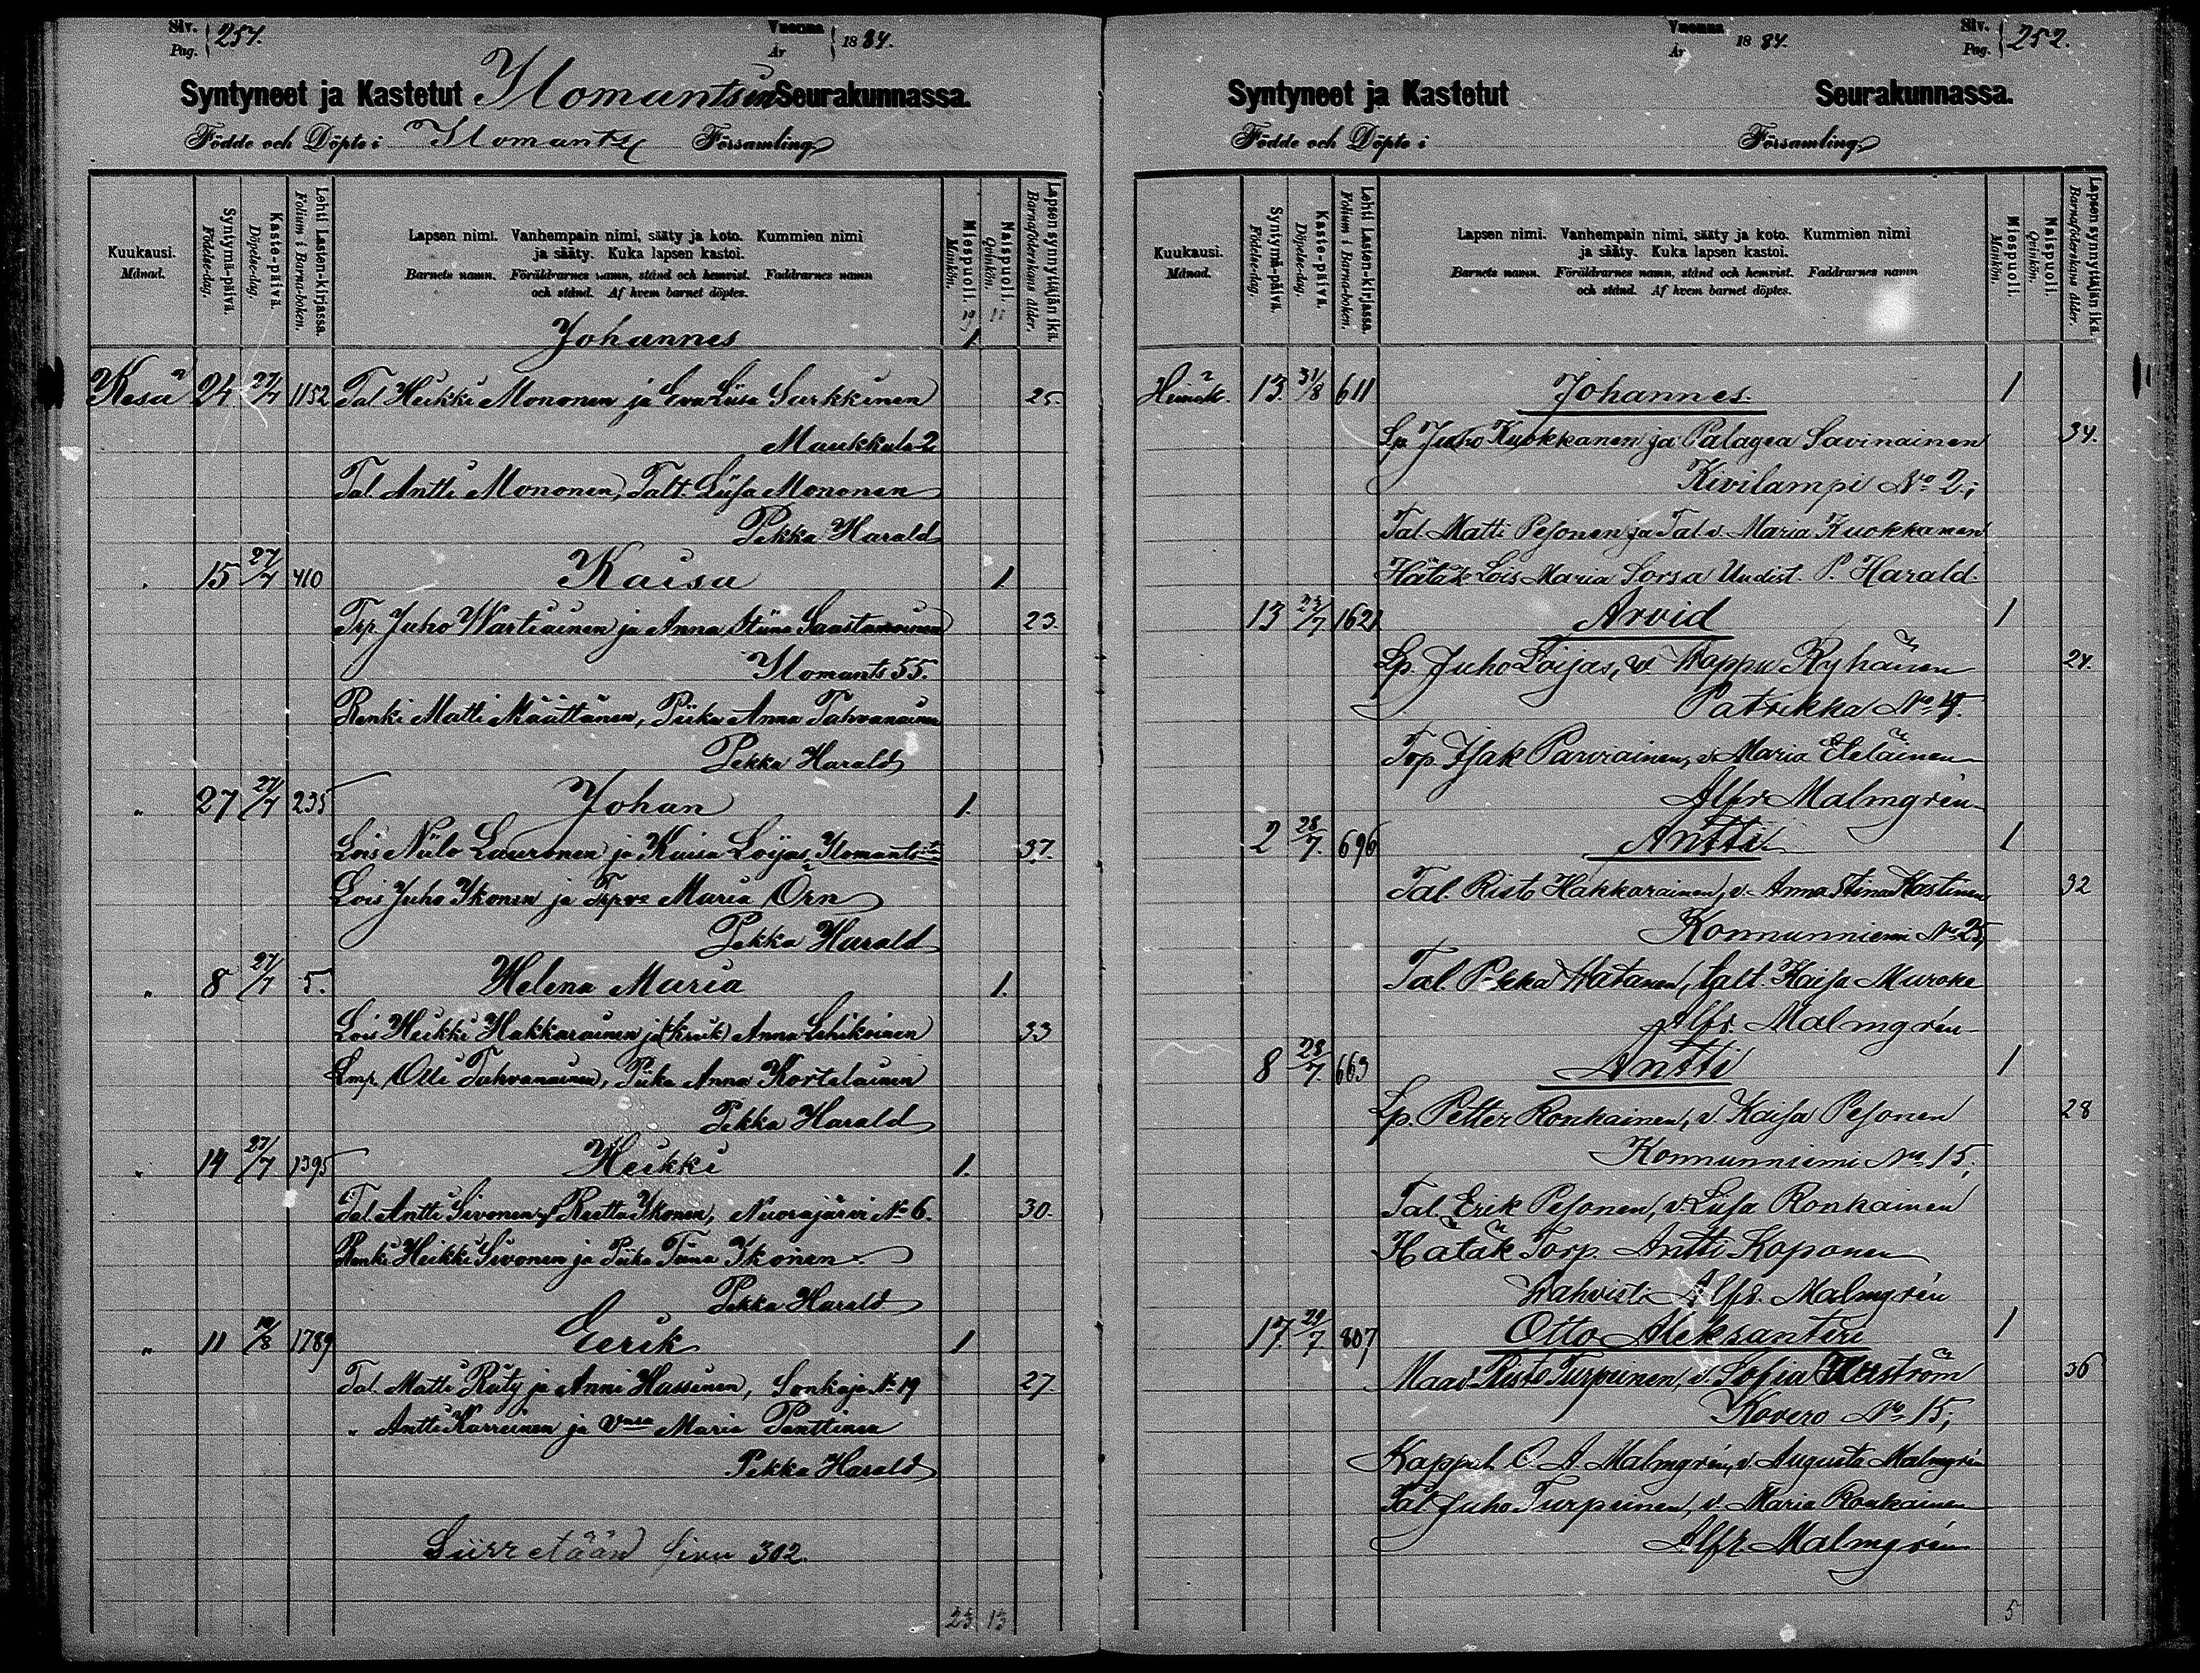 Siv. Pag. 251.
Vuonna År 1884.
Syntyneet ja Kastetut Ilomantsin Seurakunnassa.
Födde och Döpte i Ilomants Församling
Kuukausi. Månad.
Syntymä-päivä. Födelse-dag.
Kaste-päivä. Döpelse-dag.
Lehti Lasten-kirjassa. Folium i Barna-boken.
Lapsen nimi. Vanhempain nimi, sääty ja koto. Kummien nimi
ja sääty. Kuka lapsen kastoi.
Barnets namn. Föräldrarnes namn, stånd och hemvist. Faddrarnes namn
och stånd. Af hvem barnet döptes.
Miespuoli. Mankön.
Naispuoli. Qvinkön.
Lapsensynnyttäjän ikä. Barnaföderskans ålder.
19 11
Johannes 1
Kesä 24 27/7 1152 Tal Heikki Mononen ja Eva Liisa Sarkkinen 25.
Maukkula 2
Tal. Antti Mononen, Talt. Liisa Mononen
Pekka Harald
" 15 27/7 410 Kaisa 1
Trp. Juho Wartiainen ja Anna Stiina Saastamoinen 23.
Ilomants 55.
Renki Matti Määttänen, Piika Anna Tahvanainen
Pekka Harald
" 27 27/7 235 Johan 1.
Lois Niilo Lauronen ja Kaisa Loijas, Ilomants 37.
Lois Juho Ikonen ja Trp. v. Maria Örn
Pekka Harald
" 8 27/7 5. Helena Maria 1.
Lois Heikki Hakkarainen ja (kreik) Anna Lehikoinen 33
Lmp. Olli Tahvanainen, Piika Anna Kortelainen
Pekka Harald
" 14 27/7 1395 Heikki 1.
Tal. Antti Sivonen, Reetta Ikonen, Nuorajärvi No 6. 30.
Renki Heikki Sivonen ja Piika Tiina Ikonen
Pekka Harald
" 11 10/8 1789 Eerik 1
Tal. Matti Räty ja Anni Hassinen, Sonkaja No 19 27.
" Antti Karreinen ja Vnsa Maria Penttinen
Pekka Harald
Siirretään sivu 302.
23 13
Siv. Pag. 252.
Vuonna År 1884.
Syntyneet ja Kastetut Seurakunnassa.
Födde och Döpte i Församling
Kuukausi. Månad.
Syntymä-päivä. Födelse-dag.
Kaste-päivä. Döpelse-dag.
Lehti Lasten-kirjassa. Folium i Barna-boken.
Lapsen nimi. Vanhempain nimi, sääty ja koto. Kummien nimi
ja sääty. Kuka lapsen kastoi.
Barnets namn. Föräldrarnes namn, stånd och hemvist. Faddrarnes namn
och stånd. Af hvem barnet döptes.
Miespuoli. Mankön.
Naispuoli. Qvinkön.
Lapsensynnyttäjän ikä. Barnaföderskans ålder.
Heinäk. 13. 31/8 611 Johannes. 1
Lp. Juho Kuokkanen ja Palagea Savinainen 34.
Kivilampi No 2;
Tal. Matti Pesonen ja Tal. v. Maria Kuokkanen
Hätäk. Lois Maria Sorsa Uudist. P. Harald.
13 23/7 1621 Arvid 1
Lp. Juho Loijas, v. Wappu Ryhänen 24.
Patrikka No 4.
Torp. Isak Parviainen, v. Maria Eteläinen
Alfr Malmgrén
2 28/7. 696 Antti 1
Tal. Risto Hakkarainen, v. Anna Stina Kastinen 32
Konnunniemi No 25,
Tal. Pekka Watanen, talt. Kaisa Muroke
Alfr. Malmgrén
8 28/7. 663 Antti 1
Lp. Petter Ronkainen, v. Kaisa Pesonen 28
Konnunniemi No 15;
Tal. Erik Pesonen, v. Liisa Ronkainen
Hätäk Torp. Antti Koponen
Wahvisti Alfr. Malmgrén
17. 29/7. 807 Otto Aleksanteri 1
Maav. Risto Turpeinen, v. Sofia 36
Kovero No 15;
Kappal. O. A. Malmgrén, v. Augusta Malmgrén
Tal Juho Turpeinen, v. Maria Ronkainen
Alfr Malmgrén
5